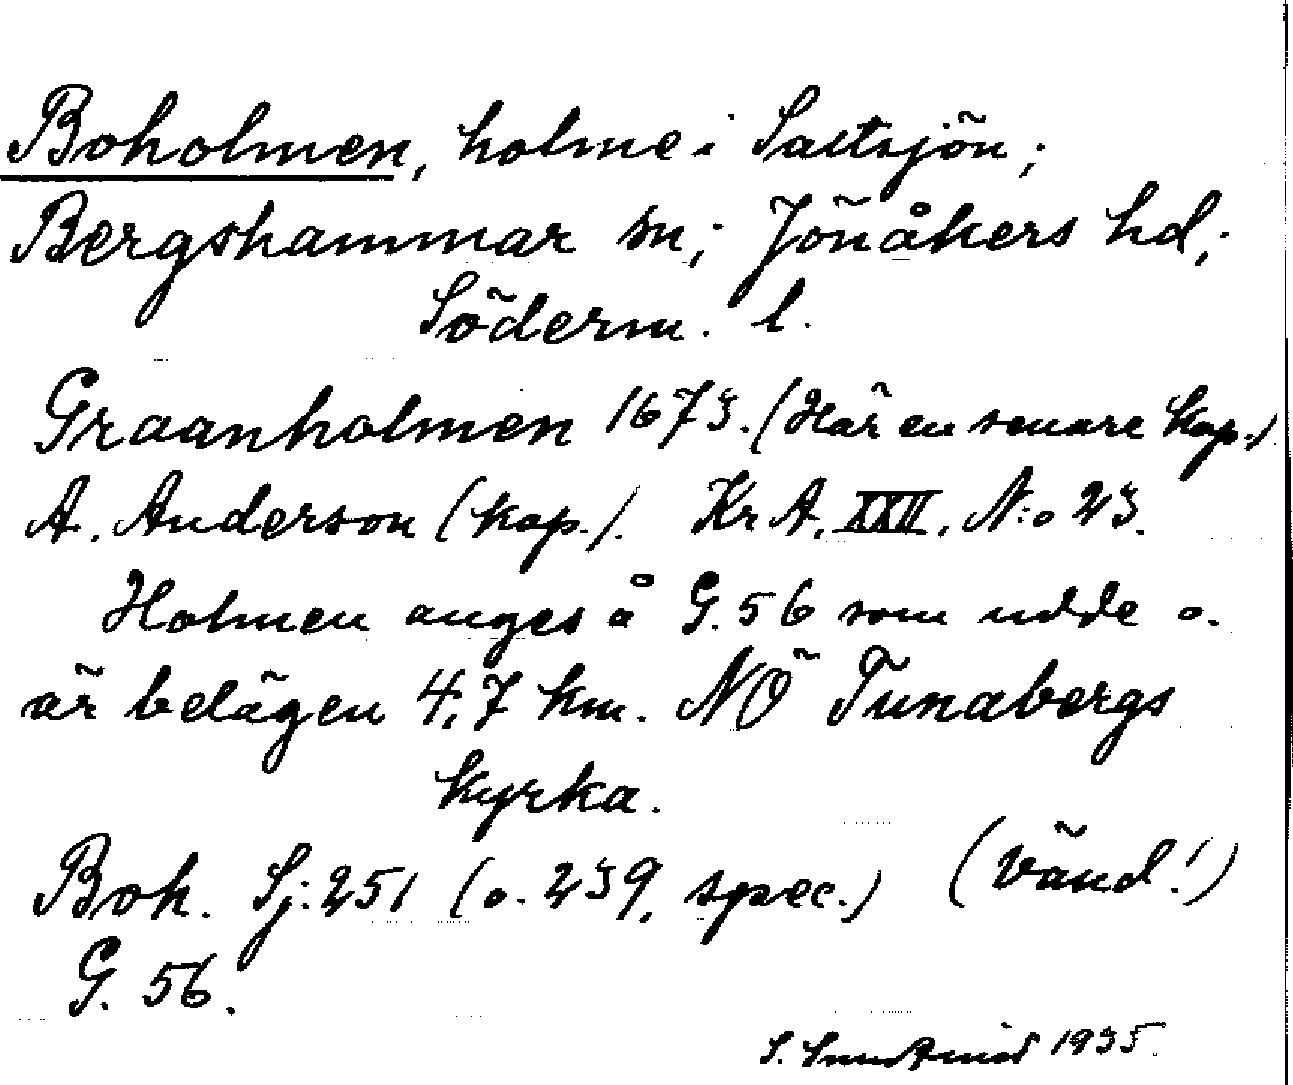 Boholmen, holme i Saltsjön;
Bergshammar sn; Jönåkers hd;
Söderm. l.
Graanholmen 1673. (Här en senare kop.)
A. Anderson (kop.). Kr A. XXII. N:o 23.
Holmen anges å G. 56 som udde o.
är belägen 4,7 km. NÖ Tunabergs
kyrka.
Boh. Sj: 251 (o. 239, spec.) (Vänd!)
G. 56.
S. 1935.